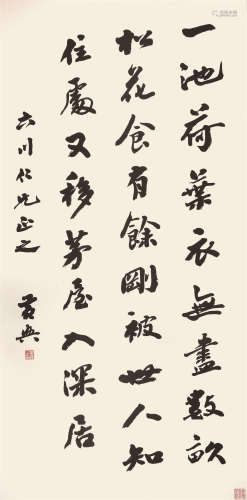 一池荷葉衣無盡數畝
松花食有餘剛被世人知
住處又移茅屋入深居
六川仁兄正之
黄興